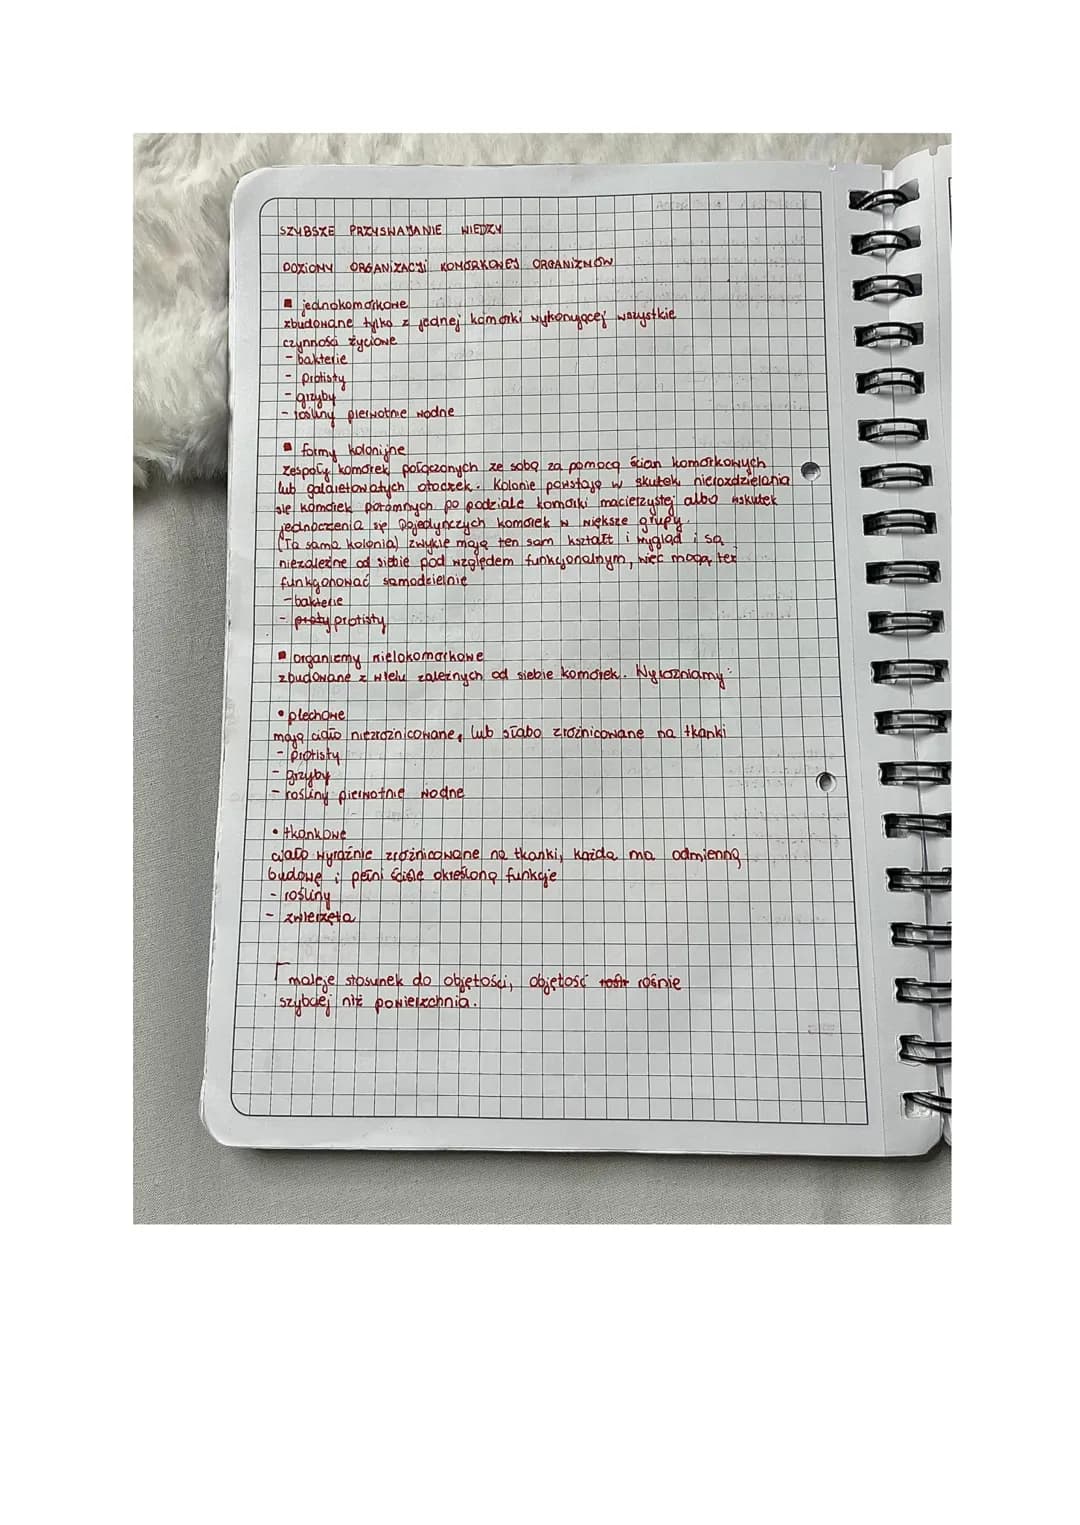 SZYBSZE PRZYSWAJANIE WIEDZY
POZIOMY ORGANIZACJI KOMÓRKOWEJ ORGANIZMÓW
▪ jednokomórkowe
zbudowane tylko z jednej komórki wykonującej wszystkie
czynności życiowe
- bakterie
- protisty
- grzyby
- rośliny pierwotnie wodne
▪ formy kolonijne
zespoły komórek połączonych ze sobą za pomocą ścian komórkowych
lub galaretowatych otoczek. Kolonie powstają w skutek nierozdzielania
się komórek potomnych po podziale komórki macierzystej albo wskutek
jednoczenia się pojedynczych komórek w większe grupy.
(Ta sama kolonia) zwykle mają ten sam kształt i wygląd i są
niezależne od siebie pod względem funkcjonalnym, więc mogą też
funkcjonować samodzielnie
- bakterie
- proty protisty
▪ organizmy wielokomórkowe
zbudowane z wielu zależnych od siebie komórek. Wyróżniamy:
• plechowe
mają ciało niezróżnicowane, lub słabo zróżnicowane na tkanki
- protisty
- grzyby
- rośliny pierwotnie wodne
• tkankowe
ciało wyraźnie zróżnicowane na tkanki, każda ma odmienną
budowę i pełni ściśle określoną funkcje
- rośliny
- zwierzęta
maleje stosunek do objętości, objętość rośnie
szybciej niż powierzchnia.